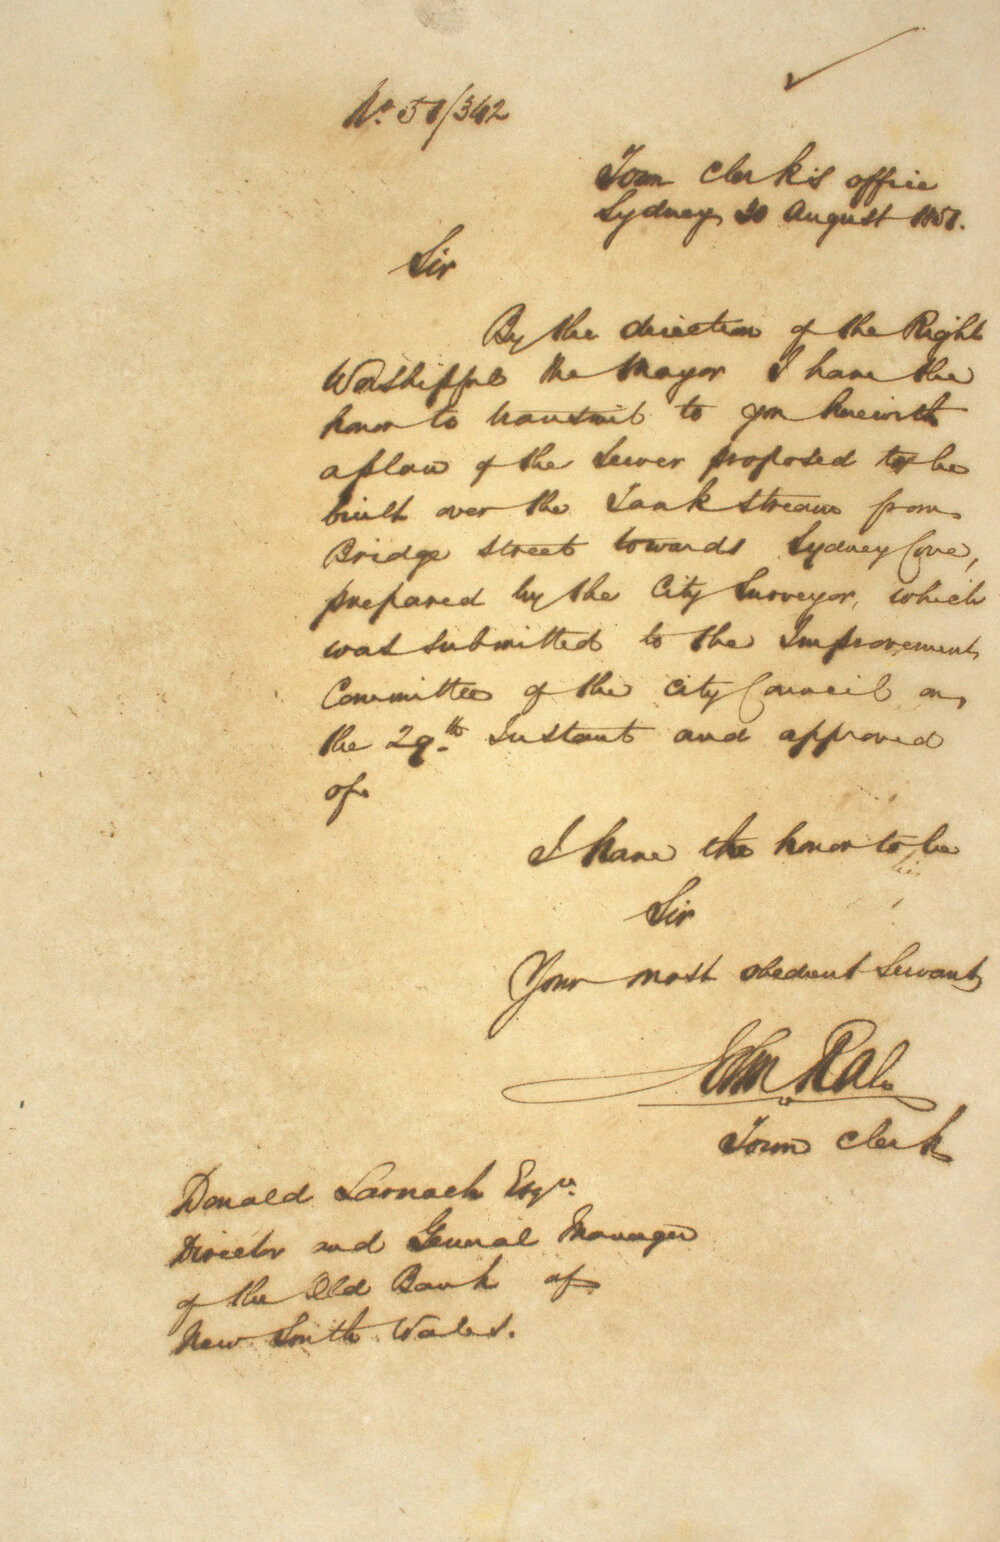 No. 57/342
Town Clerk's office
Sydney 30 August 1857.
Sir
By the direction of the Right
Worshipful the Mayor I have the
honor to transmit to you herewith
a plan of the Sewer proposed to be
built over the Tank Stream from
Bridge Street towards Sydney Cove,
prepared by the City Surveyor, which
was submitted to the Improvement
Committee of the City Council on
the 29th Instant and approved
of.
I have the honor to be
Sir
Your most obedient Servant
Town Clerk
Donald Larnach Esqr.
Director and General Manager
of the Old Bank of
New South Wales.